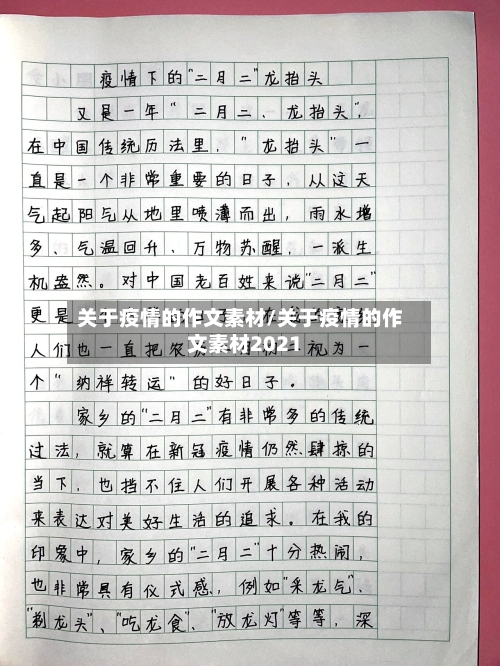 疫情下的"二月二"龙抬头
又是一年"二月二、龙抬头",
在中国传统历法里,"龙抬头"一
直是一个非常重要的日子,从这天
气起阳气从地里喷薄而出,雨水增
多、气温回升、万物苏醒,一派生
机盎然。对中国老百姓来说"二月二"
更是
关于疫情的作文素材/关于疫情的作
文素材2021
人们也一直把农 视为一
个"纳祥转运"的好日子。
家乡的"二月二"有非常多的传统
过法,就算在新冠疫情仍然肆掠的
当下,也挡不住人们开展各种活动
来表达对美好生活的追求。在我的
印象中,家乡的"二月二"十分热闹,
也非常具有仪式感,例如"采龙气"、
"剃龙头"、"吃龙食"、"放龙灯"等等,深